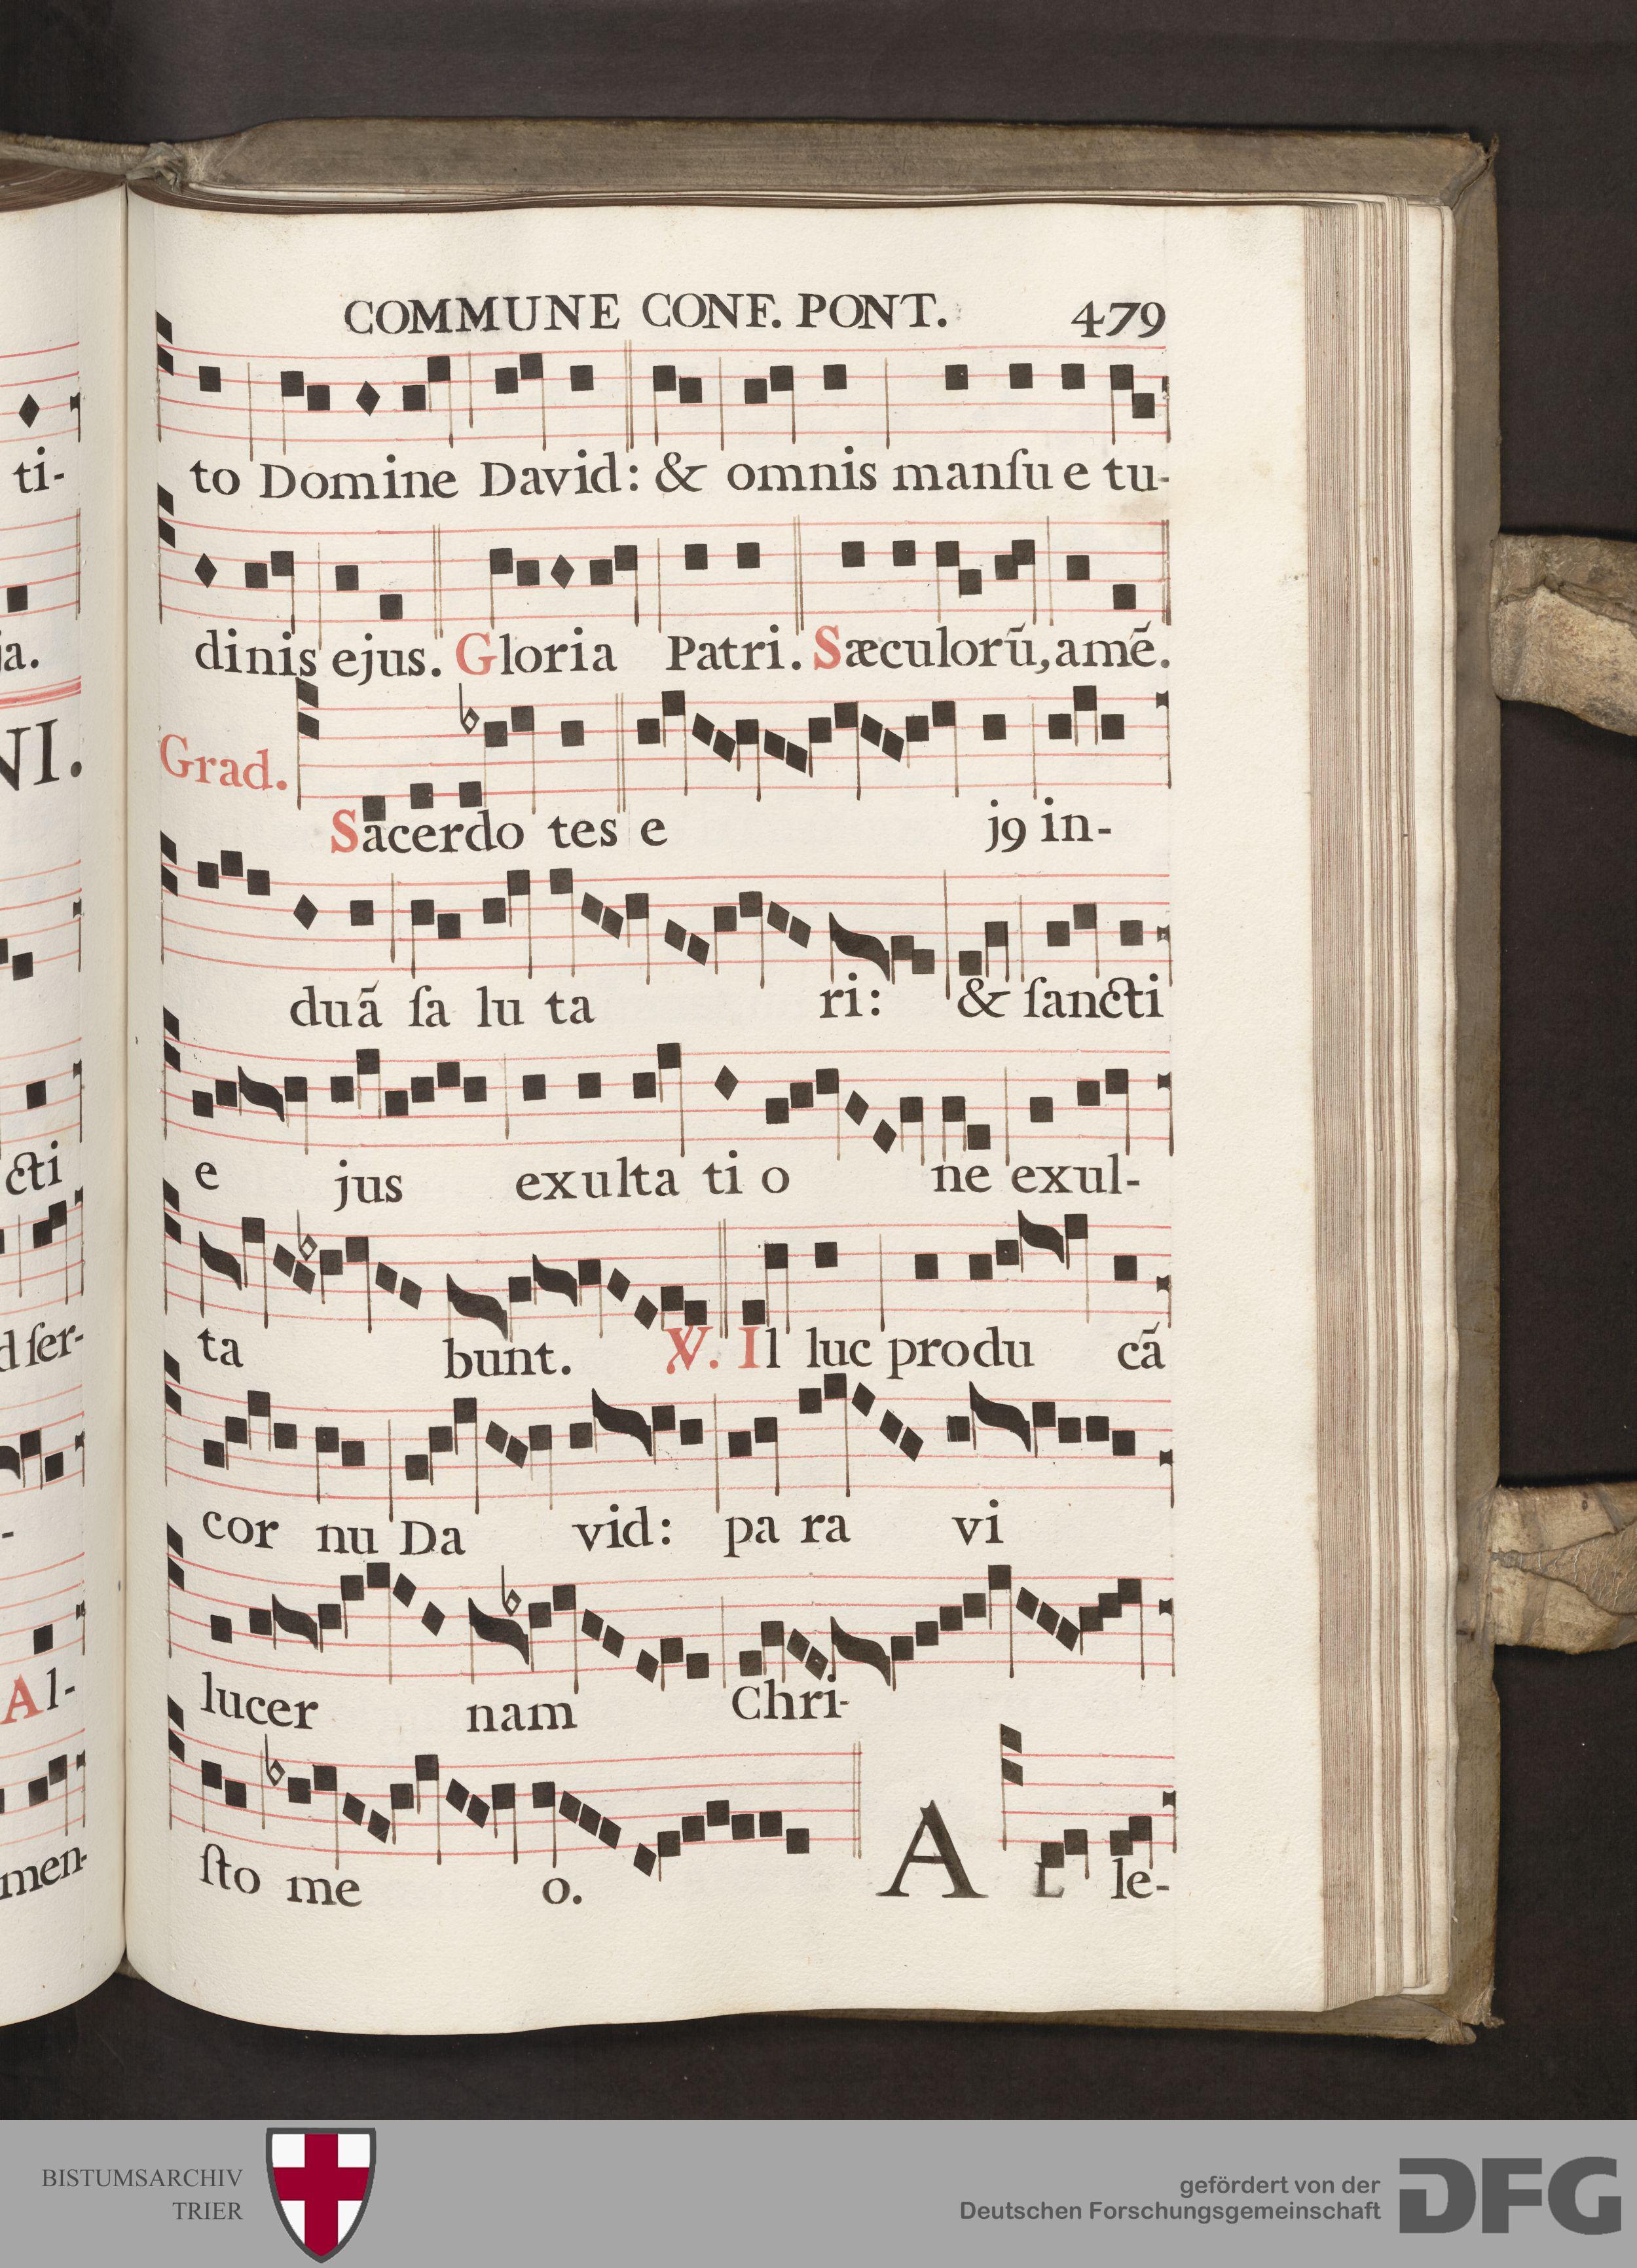 COMMUNE CONF. PONT. 479
ti-
to Domine David: & omnis manſu e tu-
ja.
dinis ejus. Gloria Patri. Sæculorũ, amẽ.
NI.
Grad.
Sacerdo tes e j9 in-
duã ſa lu ta ri: & ſancti
cti
e jus exulta ti o ne exul-
d ſer-
ta bunt. ℣. Il luc produ cã
-
cor nu Da vid: pa ra vi
Al-
lucer nam Chri-
men-
ſto me o. A L le-
BISTUMSARCHIV
TRIER
gefördert von der
Deutschen Forschungsgemeinschaft
DFG